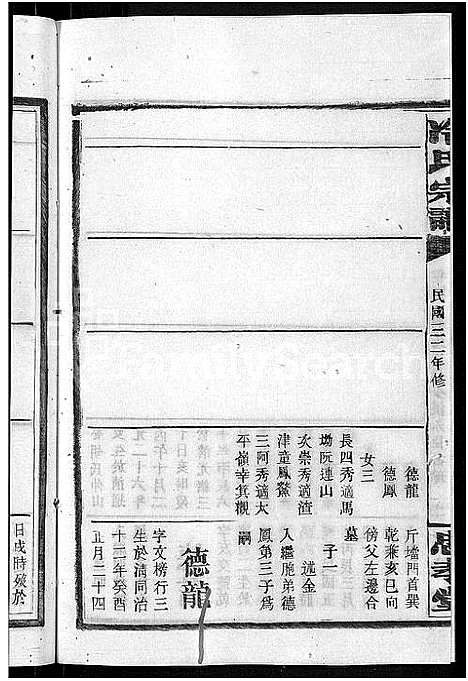 氏宗譜
民國三二年修
德龍
德鳳
女三
長四秀適馬
塲阮連山
次崇秀適渣
津童鳳鰲
三阿秀適太
平嶺幸箕概
斤墈門首巽
乾乘亥巳向
傍父左邊合
墓
子一
述金
入繼胞弟德
鳳第三子爲
嗣
德龍
字文榜行三
生於清同治
十二年癸酉
正月二十四
日戌時歿於
FamilySearch